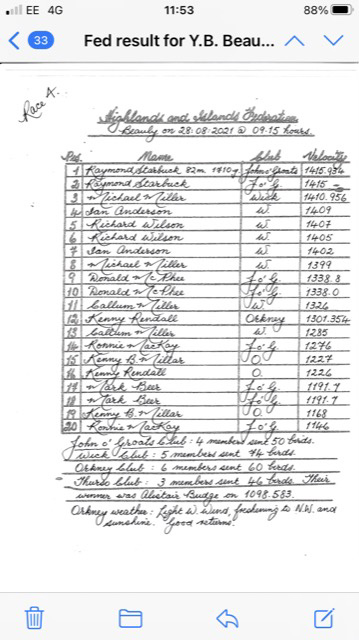 EE 4G 11:53 88%
33 Fed result for Y.B. Beau...
Race A.
Highlands and Islands Federation
Beauly on 28:08:2021 @ 09:15 hours.
Pos. Name Club Velocity
1 Raymond Starbuck 82m 1710y John o'Groats 1415.934
2 Raymond Starbuck J o' G. 1415
3 Michael Miller Wick 1410.956
4 Ian Anderson W. 1409
5 Richard Wilson W. 1407
6 Richard Wilson W. 1405
7 Ian Anderson W. 1402
8 Michael Miller W. 1399
9 Donald McPhee J o' G. 1338.8
10 Donald McPhee J o' G. 1338.0
11 Callum Miller W. 1326
12 Kenny Rendall Orkney 1301.354
13 Callum Miller W. 1285
14 Ronnie MacKay J o' G. 1276
15 Kenny B. Millar O. 1227
16 Kenny Rendall O. 1226
17 Mark Beer J o' G. 1191.7
18 Mark Beer J o' G. 1191.7
19 Kenny B. Millar O. 1168
20 Ronnie MacKay J o' G. 1146
John o' Groats Club: 4 members sent 50 birds.
Wick Club: 5 members sent 74 birds.
Orkney Club: 6 members sent 60 birds.
Thurso Club: 3 members sent 46 birds. Their
winner was Alistair Budge on 1098.583.
Orkney weather: Light W. wind, freshening to N.W. and
sunshine. Good returns.